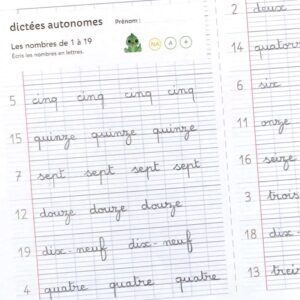 dictées autonomes
Prénom :
Les nombres de 1 à 19
Écris les nombres en lettres.
NA A +
5 cinq cinq cinq cinq
15 quinze quinze quinze
7 sept sept sept sept
12 douze douze douze
19 dix-neuf dix-neuf
4 quatre quatre quatre
2 deux
14
6 six
11 onze
16 seize
3 trois
18
13